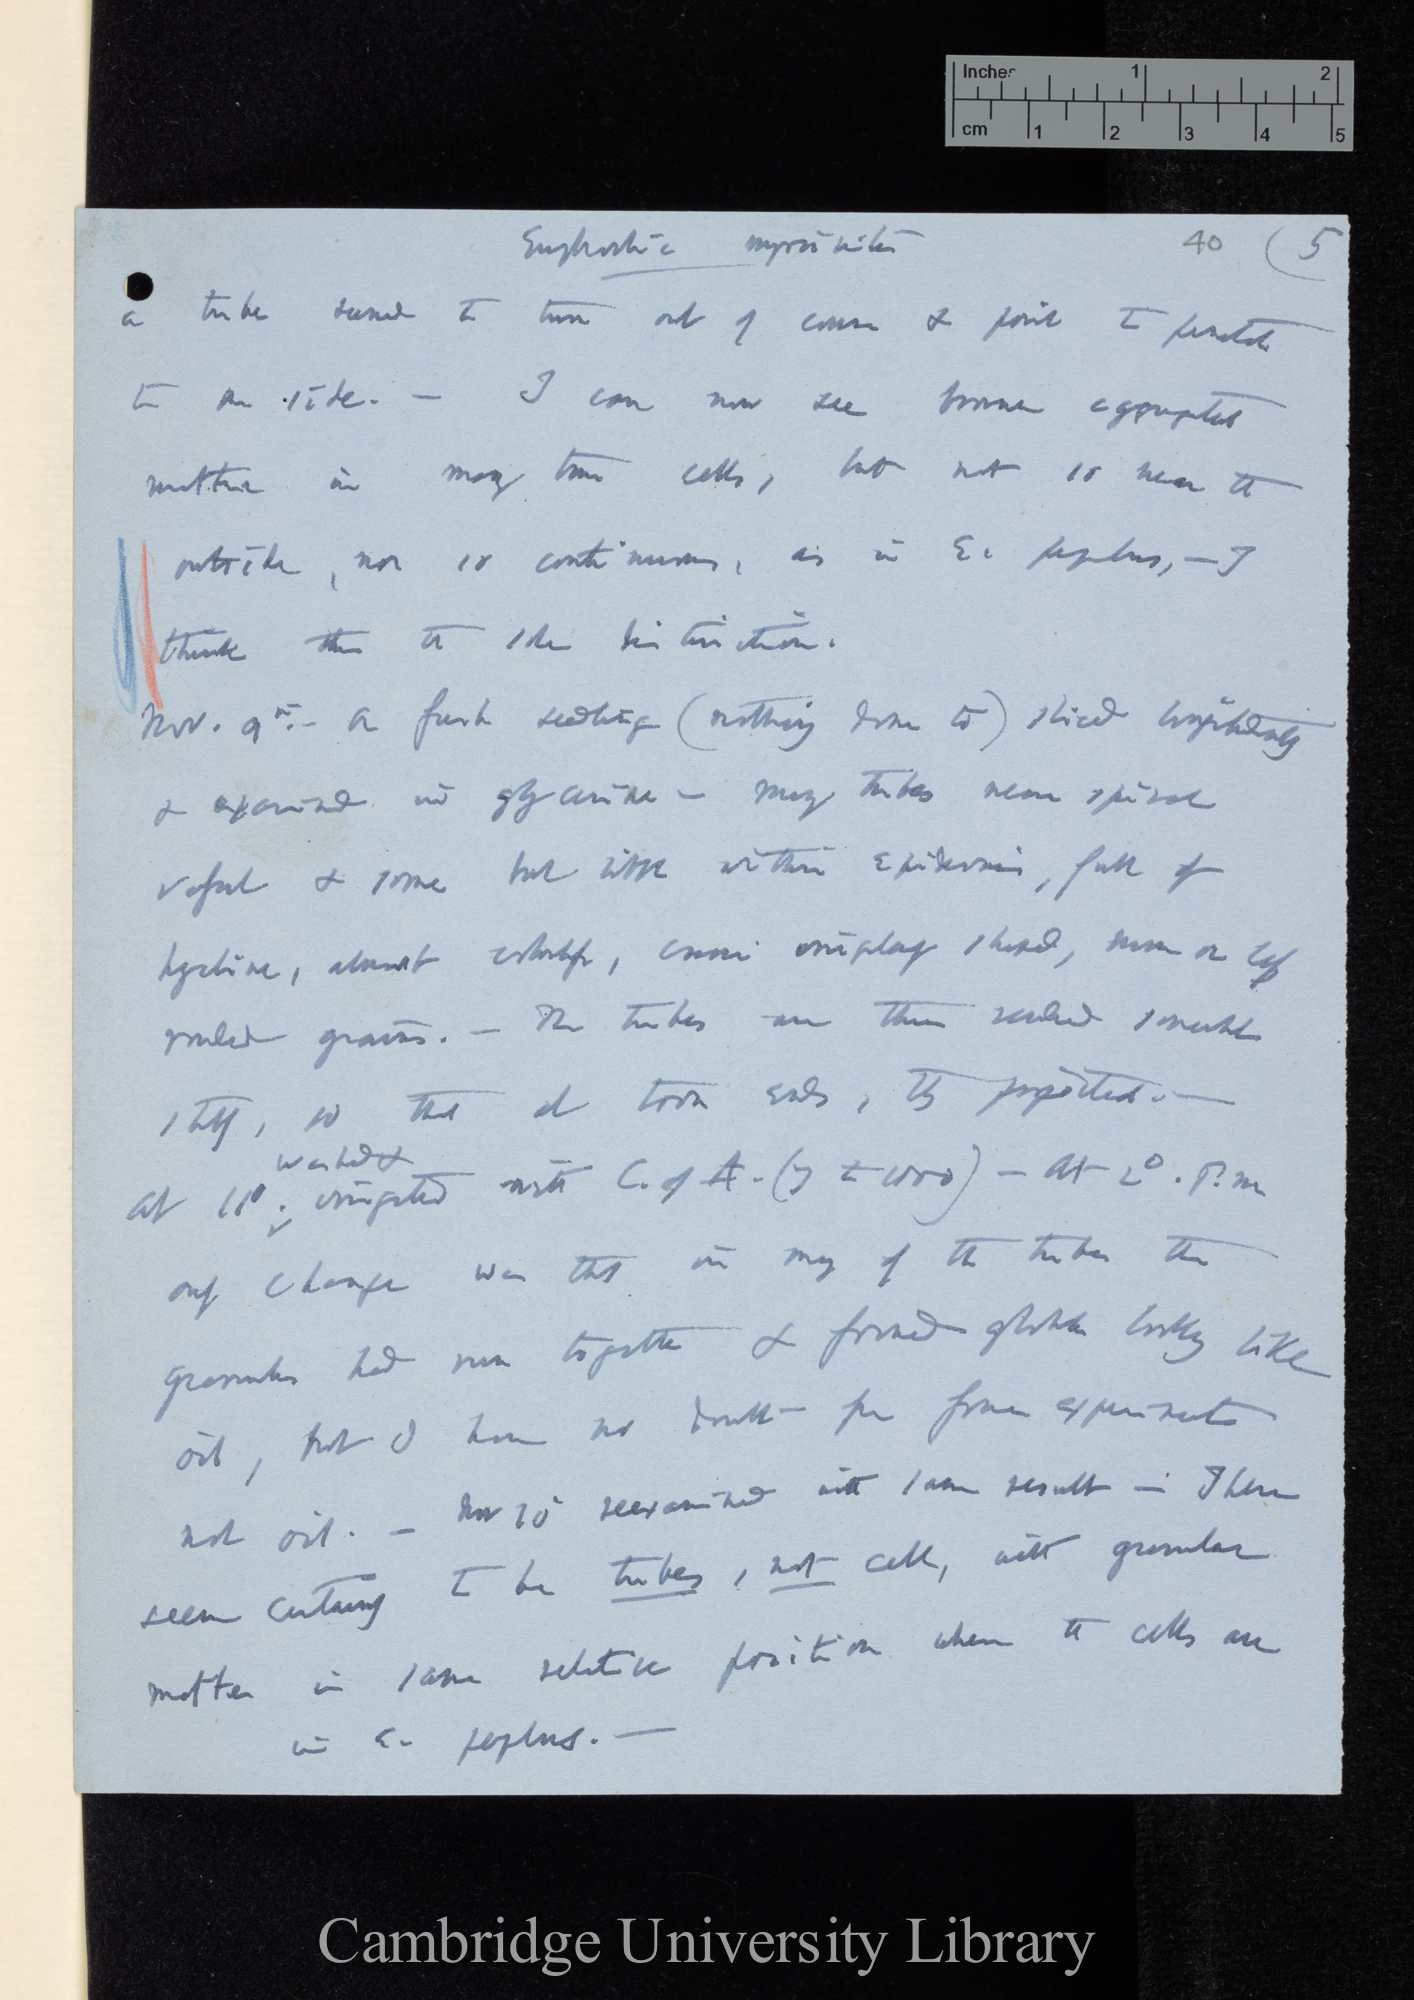 Inches 1 2
cm 1 2 3 4 5
Euphorbia myrsinites 40 (5
a tube seemed to turn out of course & point to
to one side. — I can now see brown aggregated
matter in many cells, but not so near the
outside, nor so continuous, as in E. peplus, — I
think this the sole distinction.
Nov. 9th. — A fresh seedling (nothing done to) sliced longitudinally
& examined in glycerine — many tubes near spiral
vessel & some but little within epidermis, full of
hyaline, almost colourless, irregularly shaped, more or less
rounded grains. — The tubes are thus rendered somewhat
stiff, so that at torn ends, they projected. —
washed &
At 11°. irrigated with C. of A. (7 to 1000) — At 2°. P.m
only change was that in many of the tubes the
granules had run together & formed globules looking like
oil, but I have no doubt from former experiments
not oil. — Nov 10 reexamined with same result — There
seem certainly to be tubes, not cells, with granular
matter in same relative position where the cells are
in E. peplus. —
Cambridge University Library